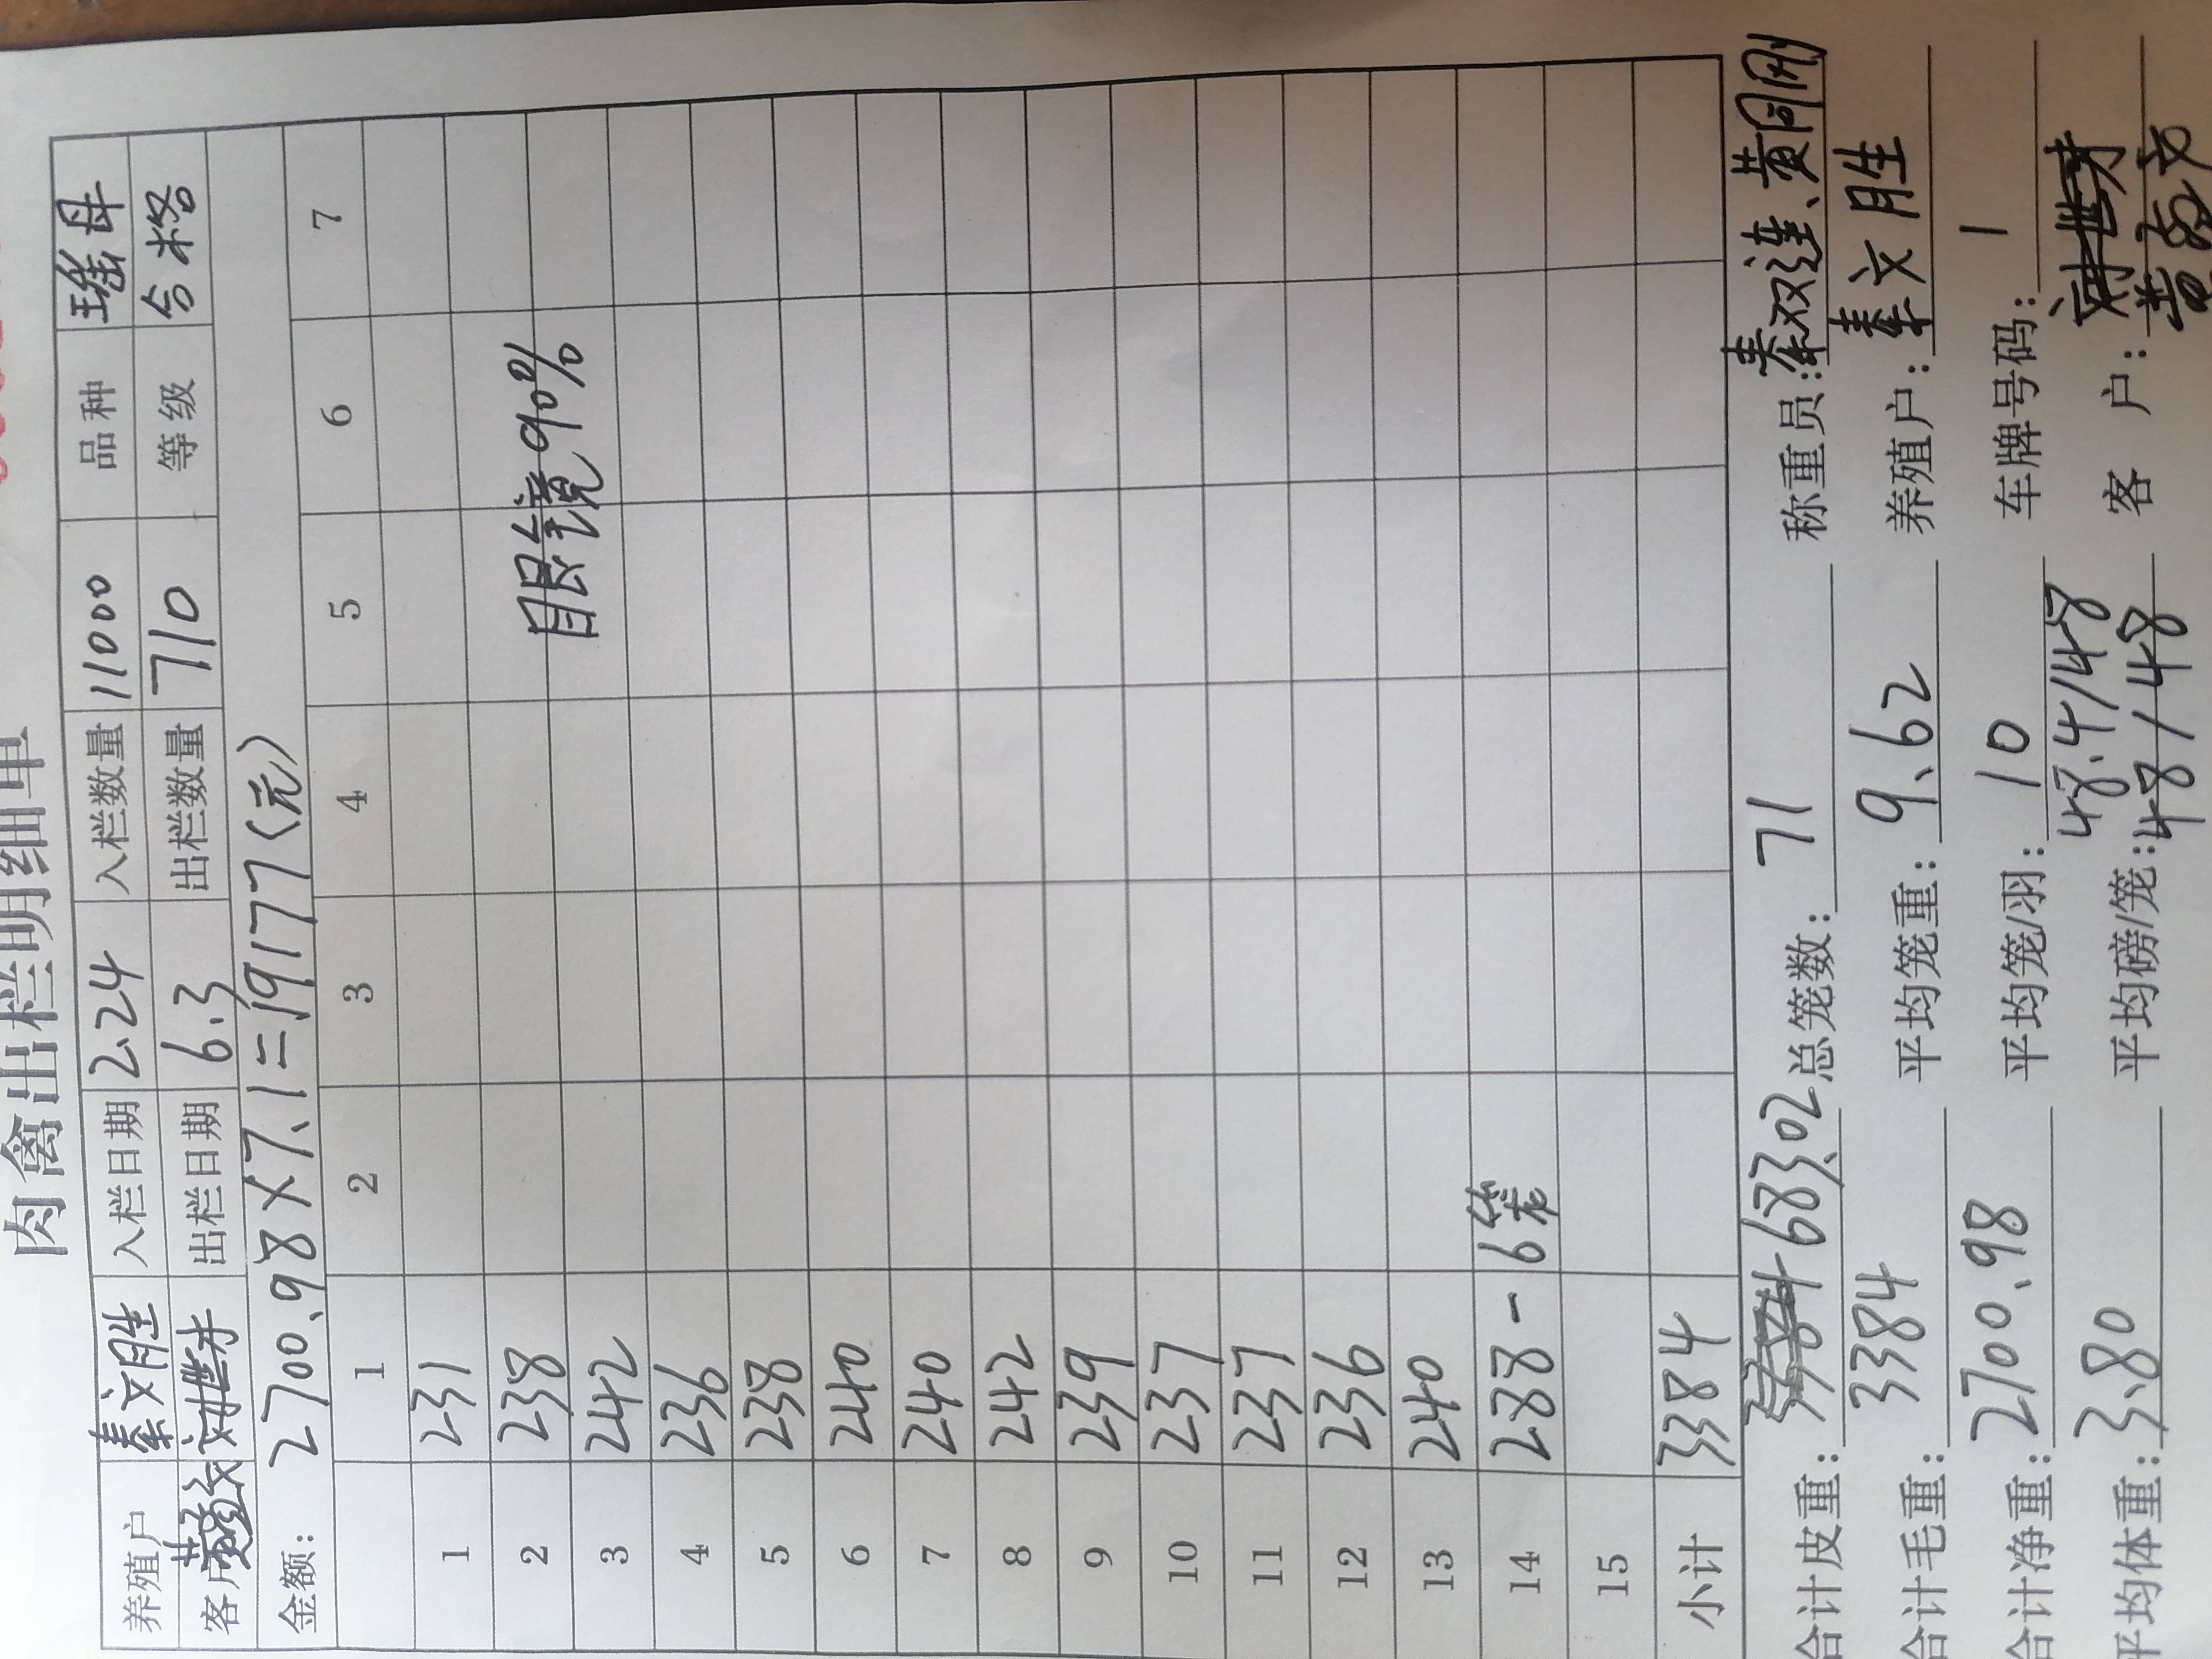 肉禽出栏明细单
养殖户 秦文胜 入栏日期 2.24 入栏数量 11000 品种 瑶母
客户 出栏日期 6.3 出栏数量 710 等级 合格
金额: 2700.98×7.1=19177(元)
1 2 3 4 5 6 7
1 231
2 238
眼镜90%
3 242
4 236
5 238
6 240
7 240
8 242
9 239
10 237
11 237
12 236
13 240
14 288-6笼
15
小计 3384
合计皮重: 683.02 总笼数: 71 称重员: 秦双连、黄同刚
合计毛重: 3384 平均笼重: 9.62 养殖户: 秦文胜
合计净重: 2700.98 平均笼/羽: 10 车牌号码: 1
48.4/148
平均体重: 3.80 平均磅/笼: 48/48 客 户: